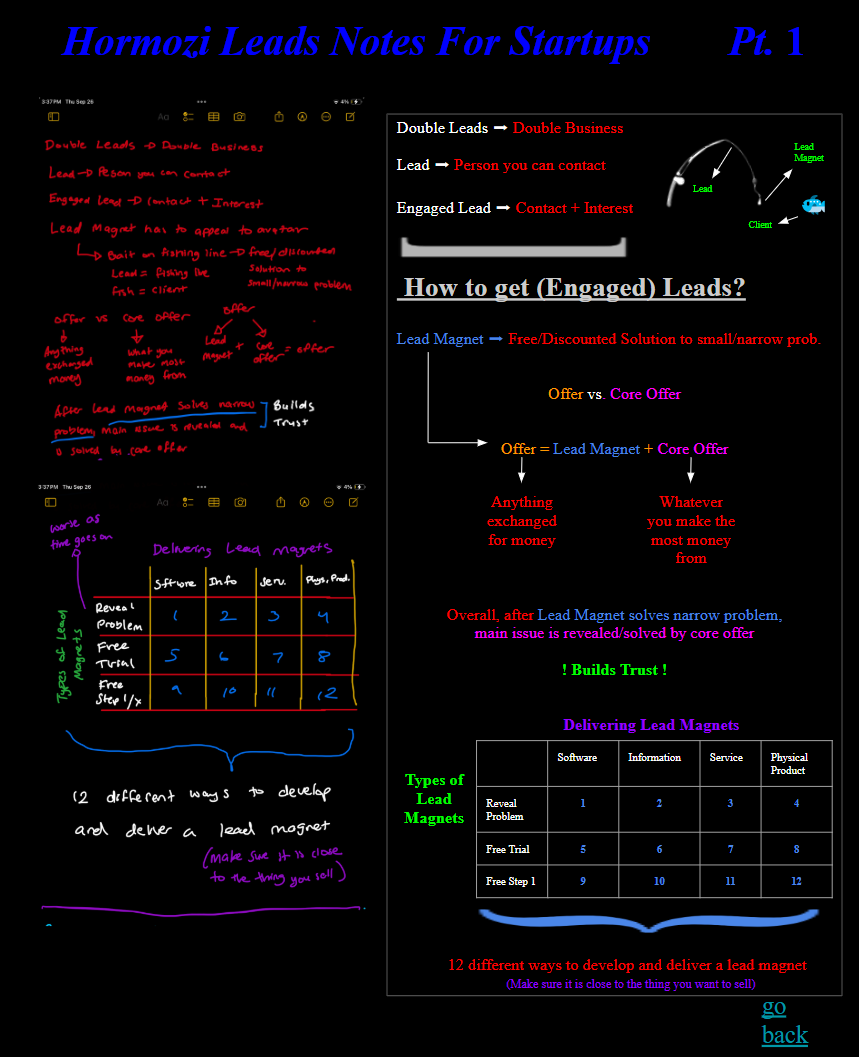 Hormozi Leads Notes For Startups Pt. 1
3:37 PM Thu Sep 26
4%
Aa
Double Leads → Double Business
Lead → Person you can contact
Engaged Lead → Contact + Interest
Lead Magnet has to appeal to avatar
→ Bait on fishing line → free/discounted
Lead = fishing line
solution to
fish = client
small/narrow problem
offer vs core offer
offer
Anything
exchanged
money
what you
make most
money from
Lead
magnet + core
offer = offer
After lead magnet solves narrow
problem, main issue is revealed and
solved by core offer
Builds
Trust
3:37 PM Thu Sep 26
4%
Aa
worse as
time goes on
Delivering Lead magnets
Types of Lead
Magnets
Software Info Serv. Phys. Prod.
Reveal
Problem 1 2 3 4
Free
Trial 5 6 7 8
Free
Step 1/x 9 10 11 12
12 different ways to develop
and deliver a lead magnet
(make sure it is close
to the thing you sell)
Double Leads ➞ Double Business
Lead ➞ Person you can contact
Engaged Lead ➞ Contact + Interest
Lead
Magnet
Lead
Client
How to get (Engaged) Leads?
Lead Magnet ➞ Free/Discounted Solution to small/narrow prob.
Offer vs. Core Offer
Offer = Lead Magnet + Core Offer
Anything
exchanged
for money
Whatever
you make the
most money
from
Overall, after Lead Magnet solves narrow problem,
main issue is revealed/solved by core offer
! Builds Trust !
Delivering Lead Magnets
Types of
Lead
Magnets
Software Information Service Physical
Product
Reveal
Problem 1 2 3 4
Free Trial 5 6 7 8
Free Step 1 9 10 11 12
12 different ways to develop and deliver a lead magnet
(Make sure it is close to the thing you want to sell)
go
back